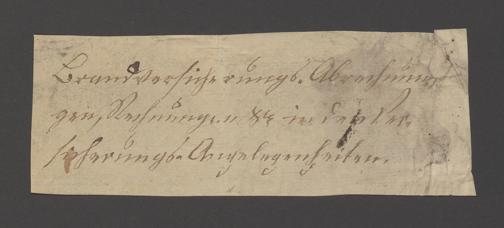 Brandversicherungs-Abrechnun-
gen, Rechnungen &c in den Ver-
sicherungs-Angelegenheiten.